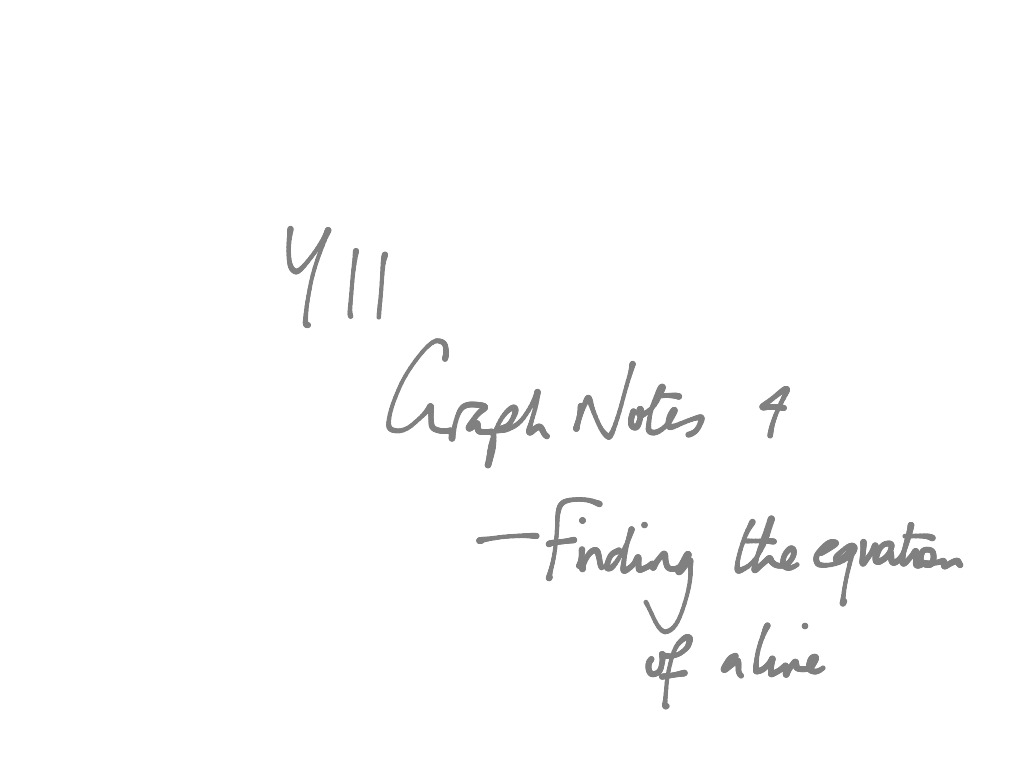 Y11
Graph Notes 4
- Finding the equation
of a line